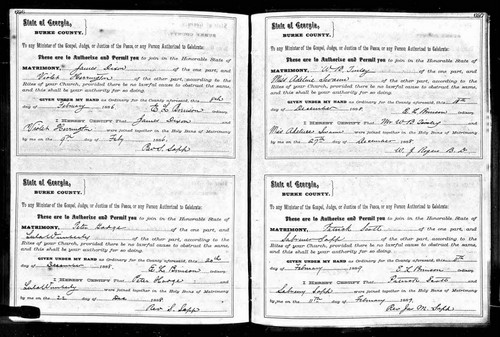 State of Georgia,
BURKE COUNTY.
To any Minister of the Gospel, Judge, or Justice of the Peace, or any Person Authorized to Celebrate:
These are to Authorize and Permit you to join in the Honorable State of
MATRIMONY, James Dixon of the one part, and
Violet Herrington of the other part, according to the
Rites of your Church, provided there be no lawful cause to obstruct the same,
and this shall be your authority for so doing.
GIVEN UNDER MY HAND as Ordinary for the County aforesaid, this
day of February
I HEREBY CERTIFY That James Dixon and
Violet Herrington were joined together in the Holy Bans of Matrimony
by me on the 9th day of Feby
Rev S. Sapp
State of Georgia,
BURKE COUNTY.
To any Minister of the Gospel, Judge, or Justice of the Peace, or any Person Authorized to Celebrate:
These are to Authorize and Permit you to join in the Honorable State of
MATRIMONY, Peter of the one part, and
Lula of the other part, according to the
Rites of your Church, provided there be no lawful cause to obstruct the same,
and this shall be your authority for so doing.
GIVEN UNDER MY HAND as Ordinary for the County aforesaid, this 20th
day of December
I HEREBY CERTIFY That Peter and
Lula were joined together in the Holy Bans of Matrimony
by me on the 22 day of Dec
Rev S. Sapp
697
State of Georgia,
BURKE COUNTY.
To any Minister of the Gospel, Judge, or Justice of the Peace, or any Person Authorized to Celebrate:
These are to Authorize and Permit you to join in the Honorable State of
MATRIMONY, W B of the one part, and
Miss of the other part, according to the
Rites of your Church, provided there be no lawful cause to obstruct the same,
and this shall be your authority for so doing.
GIVEN UNDER MY HAND as Ordinary for the County aforesaid, this
day of December
I HEREBY CERTIFY That Mr W B and
Miss were joined together in the Holy Bans of Matrimony
by me on the 27th day of December
W. J. Rogers
State of Georgia,
BURKE COUNTY.
To any Minister of the Gospel, Judge, or Justice of the Peace, or any Person Authorized to Celebrate:
These are to Authorize and Permit you to join in the Honorable State of
MATRIMONY, Patrick of the one part, and
Sapp of the other part, according to the
Rites of your Church, provided there be no lawful cause to obstruct the same,
and this shall be your authority for so doing.
GIVEN UNDER MY HAND as Ordinary for the County aforesaid, this
day of February
I HEREBY CERTIFY That Patrick and
Sapp were joined together in the Holy Bans of Matrimony
by me on the day of February
Rev Jas M. Sapp